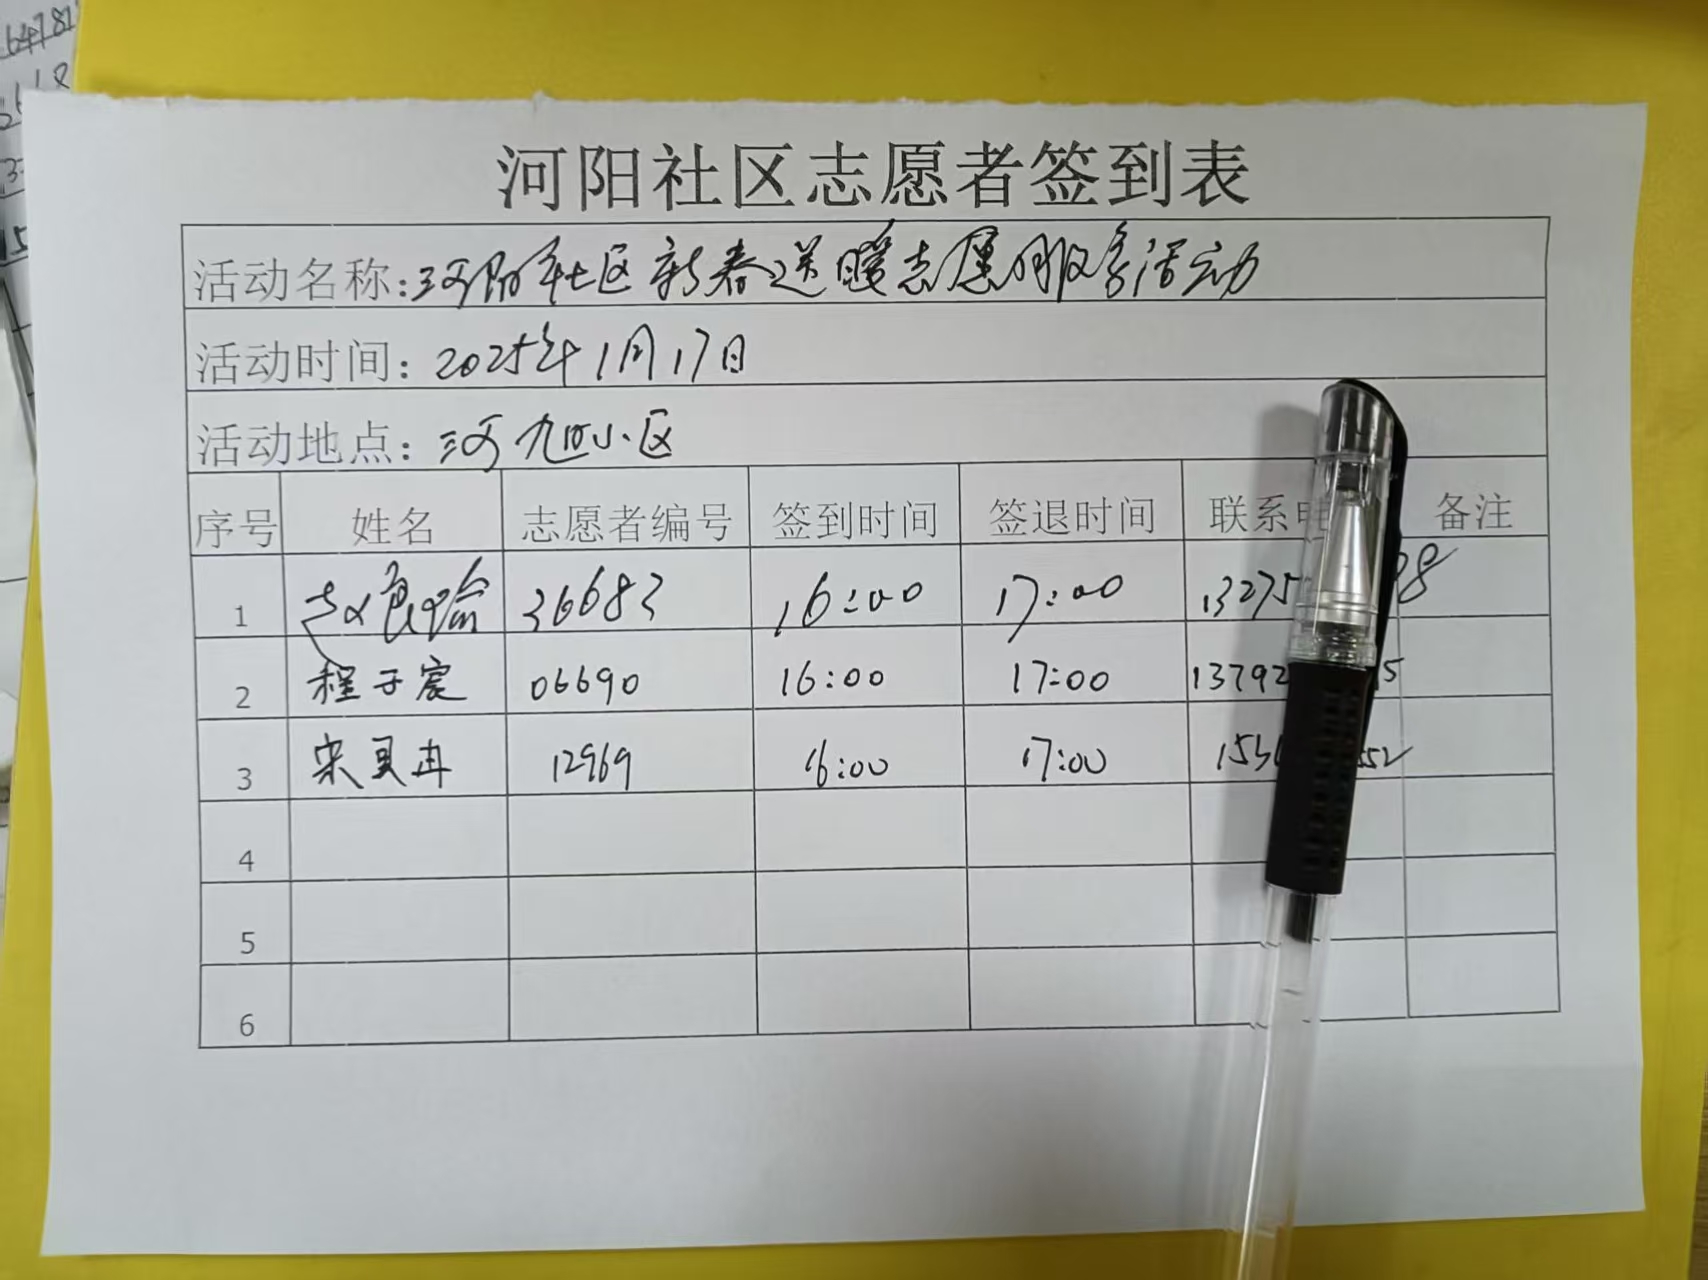 64781
河阳社区志愿者签到表
活动名称:河阳社区新春送暖志愿服务活动
活动时间: 2025年1月17日
活动地点: 河旭小区
序号 姓名 志愿者编号 签到时间 签退时间 联系电 备注
1 36683 16:00 17:00 1327598
2 程子宸 06690 16:00 17:00 137925
3 宋贝冉 12969 16:00 17:00 153552
4
5
6